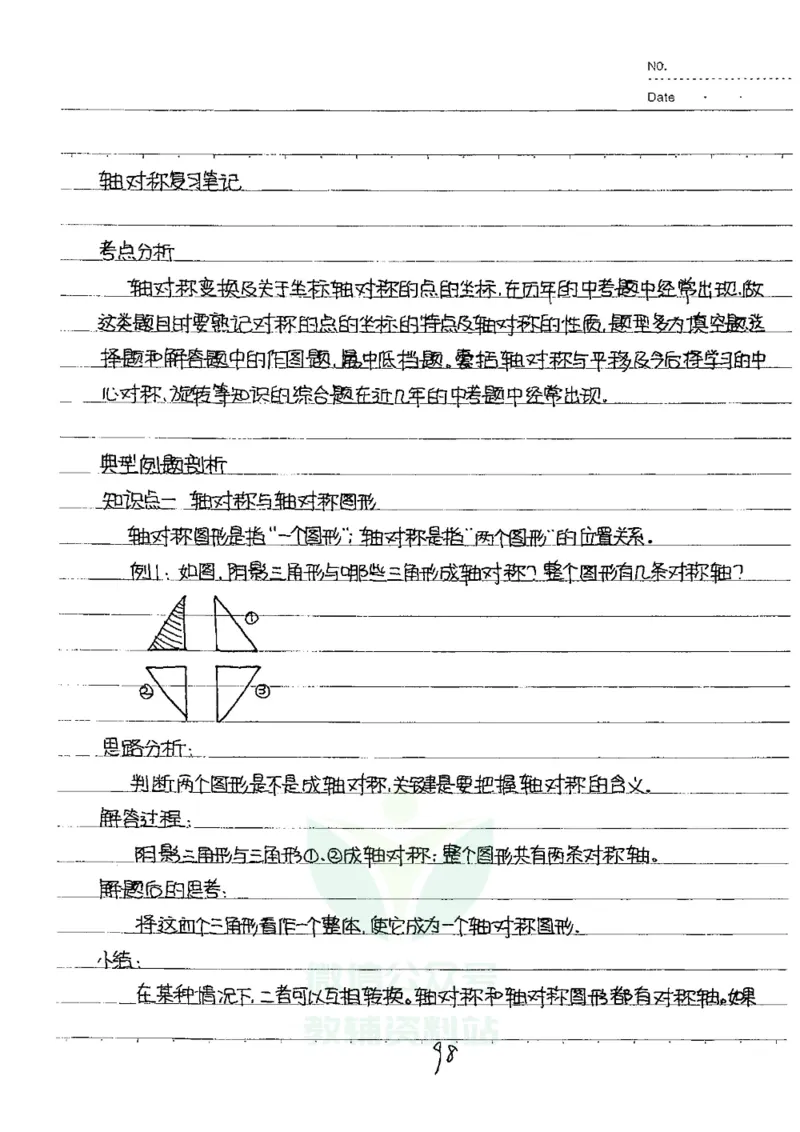 NO.
Date
轴对称复习笔记
考点分析
轴对称变换及关于坐标轴对称的点的坐标,在历年的中考题中经常出现,做
这类题目时要熟记对称的点的坐标的特点及轴对称的性质,题型多为填空题选
择题和解答题中的作图题,属中低档题。要把轴对称与平移及今后将学习的中
心对称,旋转等知识的综合题在近几年的中考题中经常出现.
典型例题剖析
知识点一 轴对称与轴对称图形
轴对称图形是指“一个图形”;轴对称是指“两个图形”的位置关系.
例1:如图,阴影三角形与哪些三角形成轴对称?整个图形有几条对称轴?
①
② ③
思路分析:
判断两个图形是不是成轴对称,关键是要把握轴对称的含义.
解答过程:
阴影三角形与三角形①、②成轴对称;整个图形共有两条对称轴。
解题后的思考:
将这四个三角形看作一个整体,使它成为一个轴对称图形.
小结:
在某种情况下,二者可以互相转换。轴对称和轴对称图形都有对称轴。如果
微信公众号
教辅资料站
98